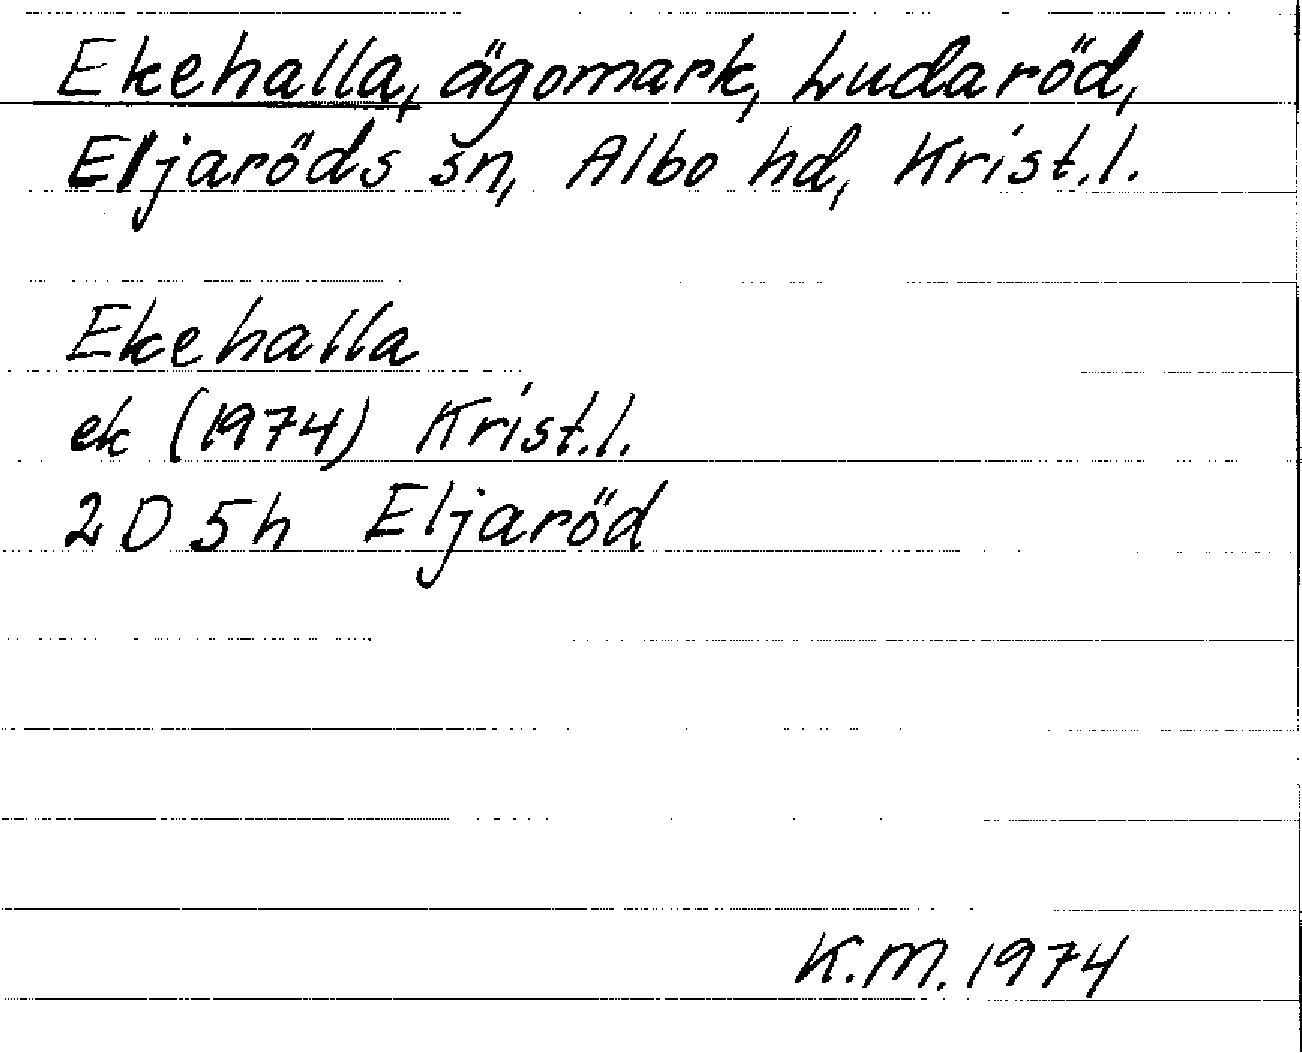 Ekehalla, ägomark, Ludaröd,
Eljaröds sn, Albo hd, Krist.l.
Ekehalla
ek (1974) Krist.l.
2D 5h Eljaröd
K.M. 1974